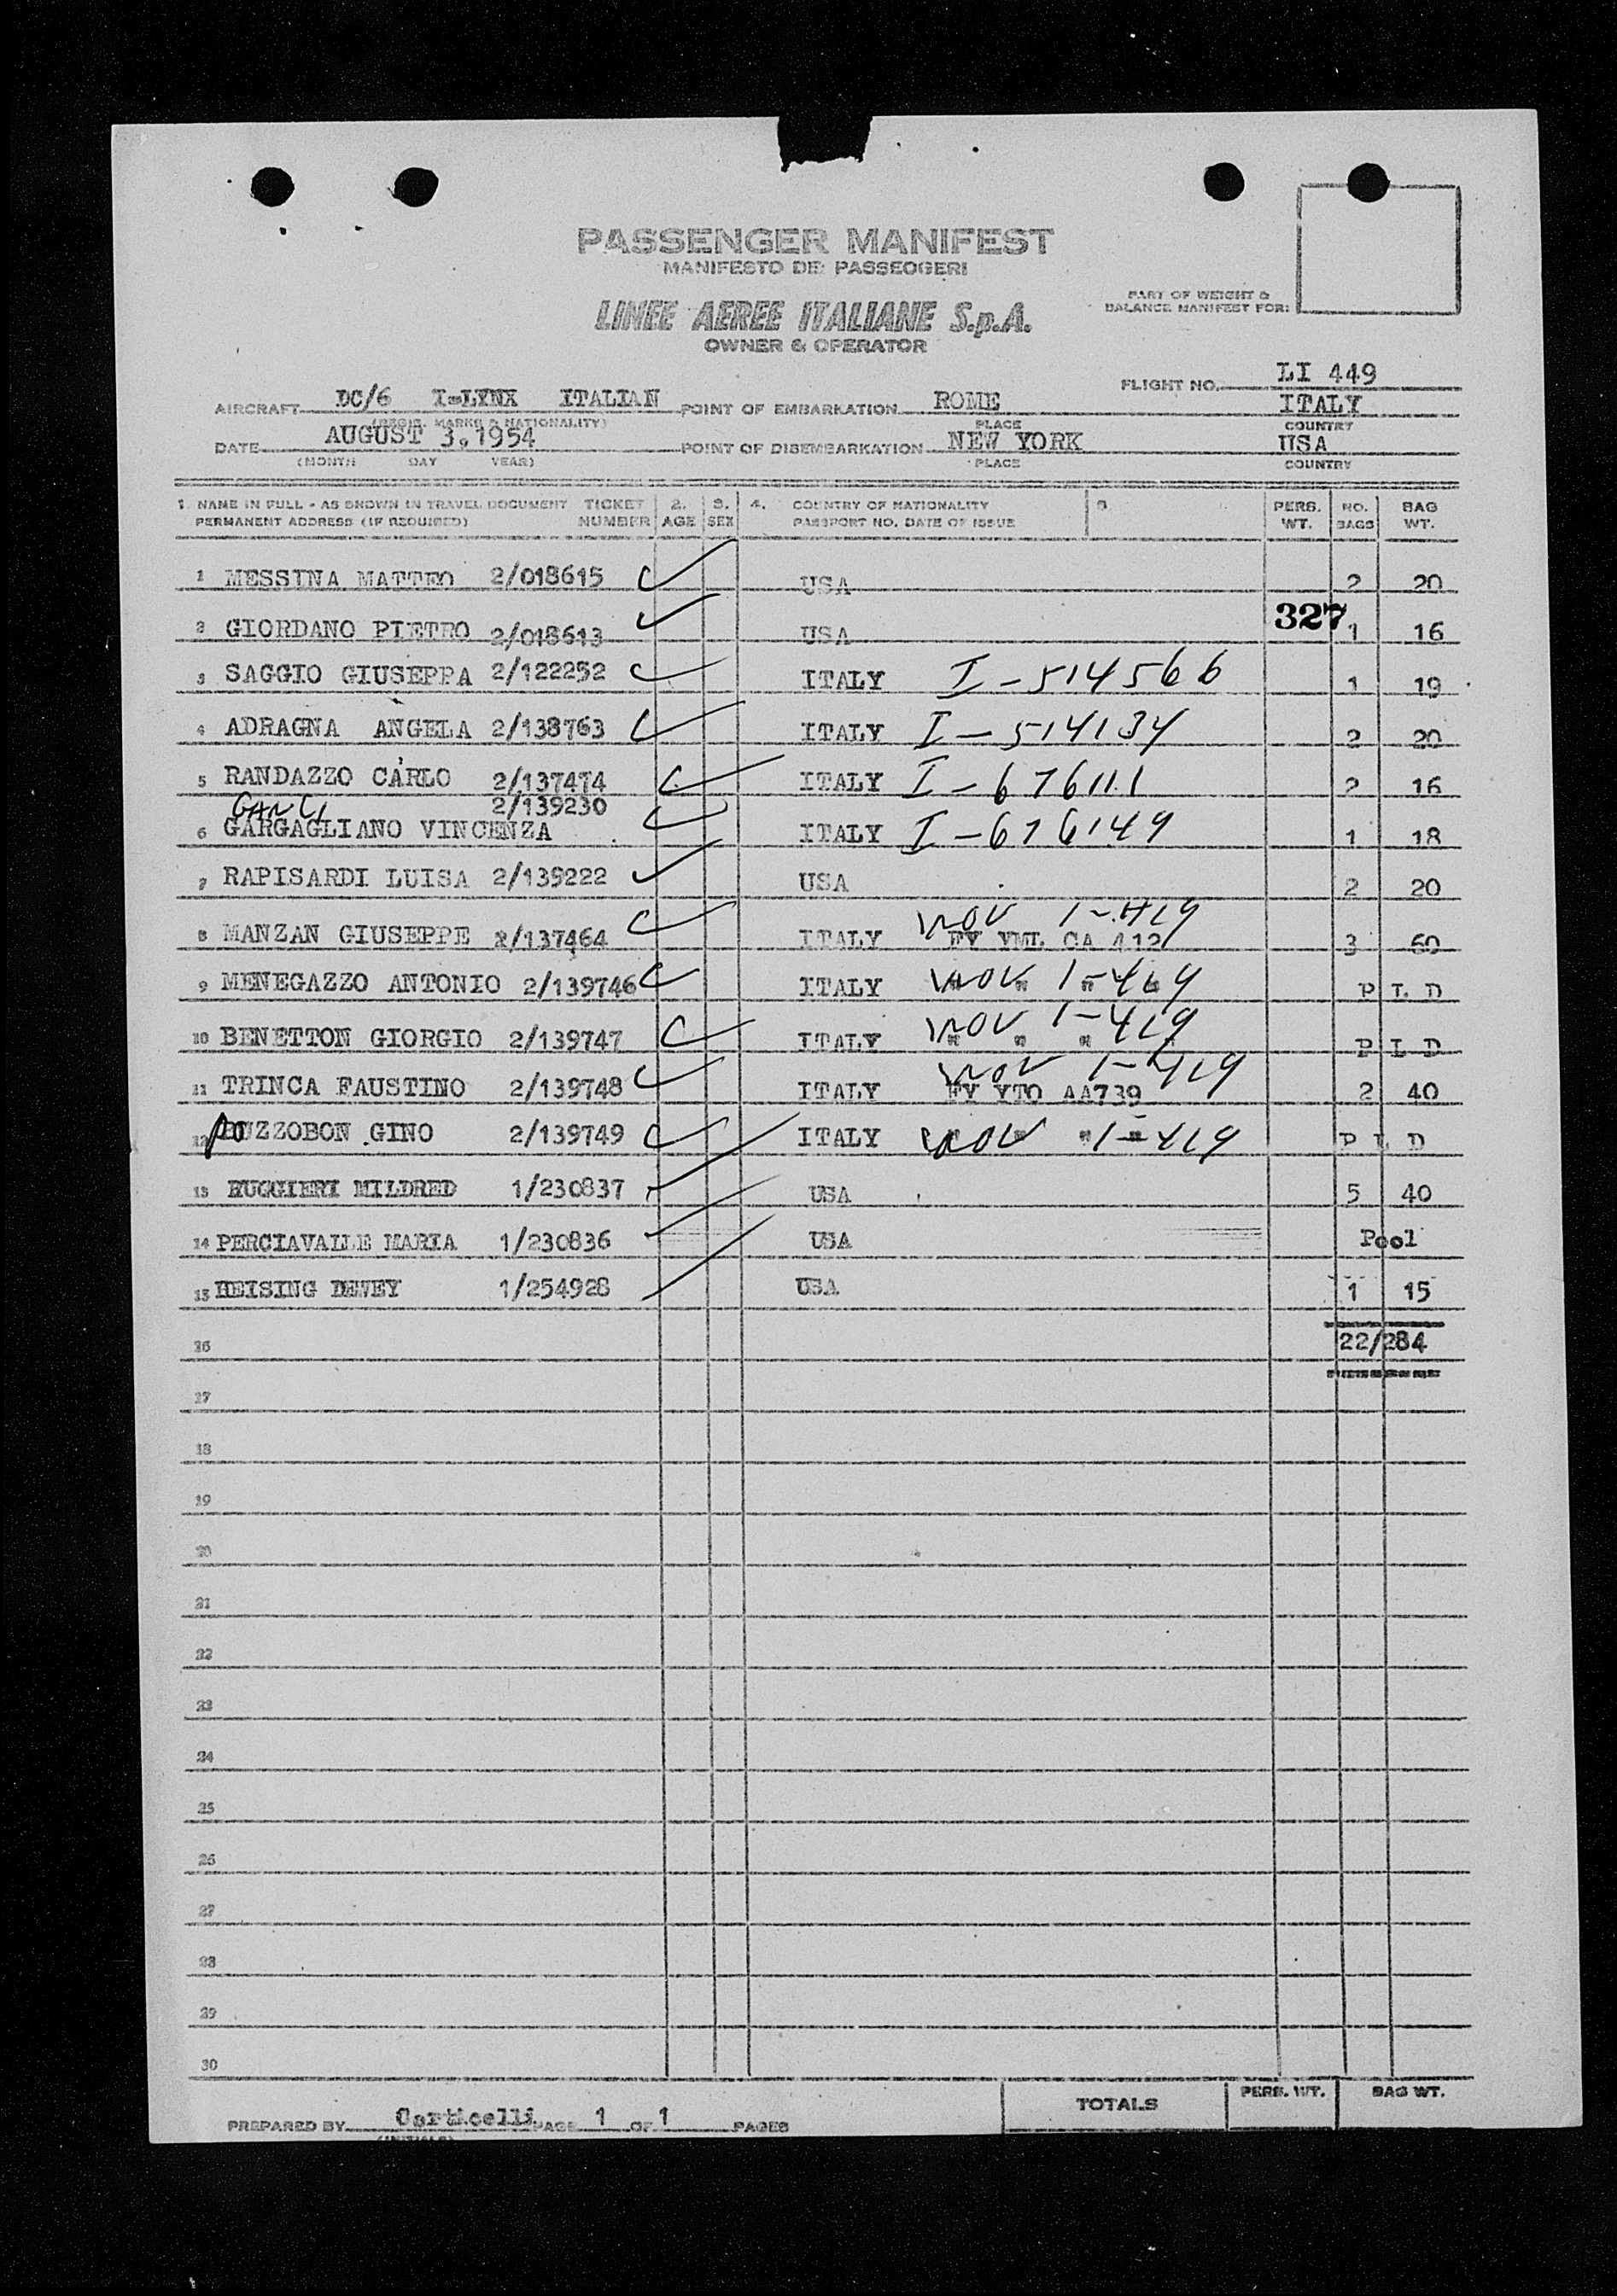 PASSENGER MANIFEST
MANIFESTO DEI PASSEGGERI
LINEE AEREE ITALIANE S.p.A.
OWNER & OPERATOR
PART OF WEIGHT &
BALANCE MANIFEST FOR:
FLIGHT NO. LI 449
AIRCRAFT DC/6 I-LYNX ITALIAN POINT OF EMBARKATION ROME ITALY
(REGIS. MARKS & NATIONALITY) PLACE COUNTRY
DATE AUGUST 3.1954 POINT OF DISEMBARKATION NEW YORK USA
(MONTH DAY YEAR) PLACE COUNTRY
1. NAME IN FULL - AS SHOWN IN TRAVEL DOCUMENT TICKET 2. 3. 4. COUNTRY OF NATIONALITY PERS. NO. BAG
PERMANENT ADDRESS (IF REQUIRED) NUMBER AGE SEX PASSPORT NO. DATE OF ISSUE WT. BAGS WT.
1 MESSINA MATTEO 2/018615 USA 2 20
327
2 GIORDANO PIETRO 2/018613 USA 1 16
3 SAGGIO GIUSEPPA 2/122252 ITALY I-514566 1 19
4 ADRAGNA ANGELA 2/138763 ITALY I-514134 2 20
5 RANDAZZO CARLO 2/137474 ITALY I-676111 2 16
GANCI 2/139230
6 GARGAGLIANO VINCENZA ITALY I-676149 1 18
7 RAPISARDI LUISA 2/139222 USA 2 20
8 MANZAN GIUSEPPE 2/137464 ITALY 3 60
9 MENEGAZZO ANTONIO 2/139746 ITALY P L D
10 BENETTON GIORGIO 2/139747 ITALY P L D
11 TRINCA FAUSTINO 2/139748 ITALY FY YTO AA739 2 40
12 POZZOBON GINO 2/139749 ITALY P L D
13 RUGGIERI MILDRED 1/230837 USA 5 40
14 PERCIAVALLE MARIA 1/230836 USA Pool
15 HEISING DEWEY 1/254928 USA 1 15
16 22/284
17
18
19
20
21
22
23
24
25
26
27
28
29
30
PREPARED BY Corticelli PAGE 1 OF 1 PAGES TOTALS PERS. WT. BAG WT.
(INITIALS)